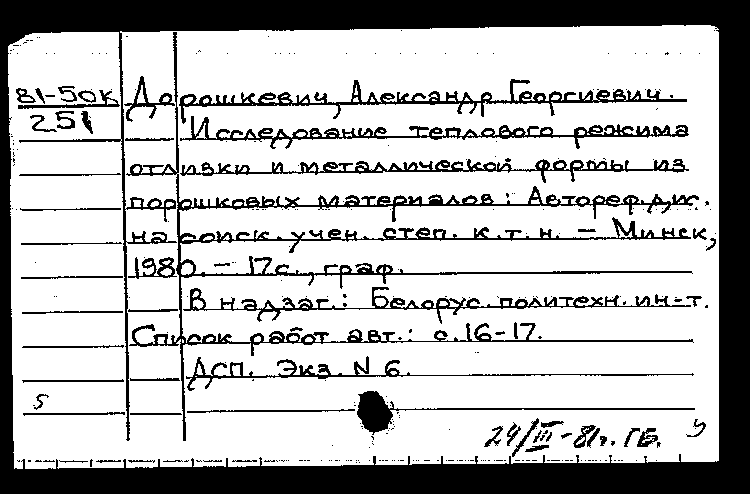 81-50к Дорошкевич, Александр Георгиевич.
251 Исследование теплового режима
отливки и металлической формы из
порошковых материалов: Автореф. дис.
на соиск. учен. степ. к.т.н. – Минск,
1980. – 17с., граф.
В надзаг.: Белорус. политехн. ин-т.
Список работ авт.: с.16-17.
ДСП. Экз. N 6.
5
24/III-81г. ГБ. У